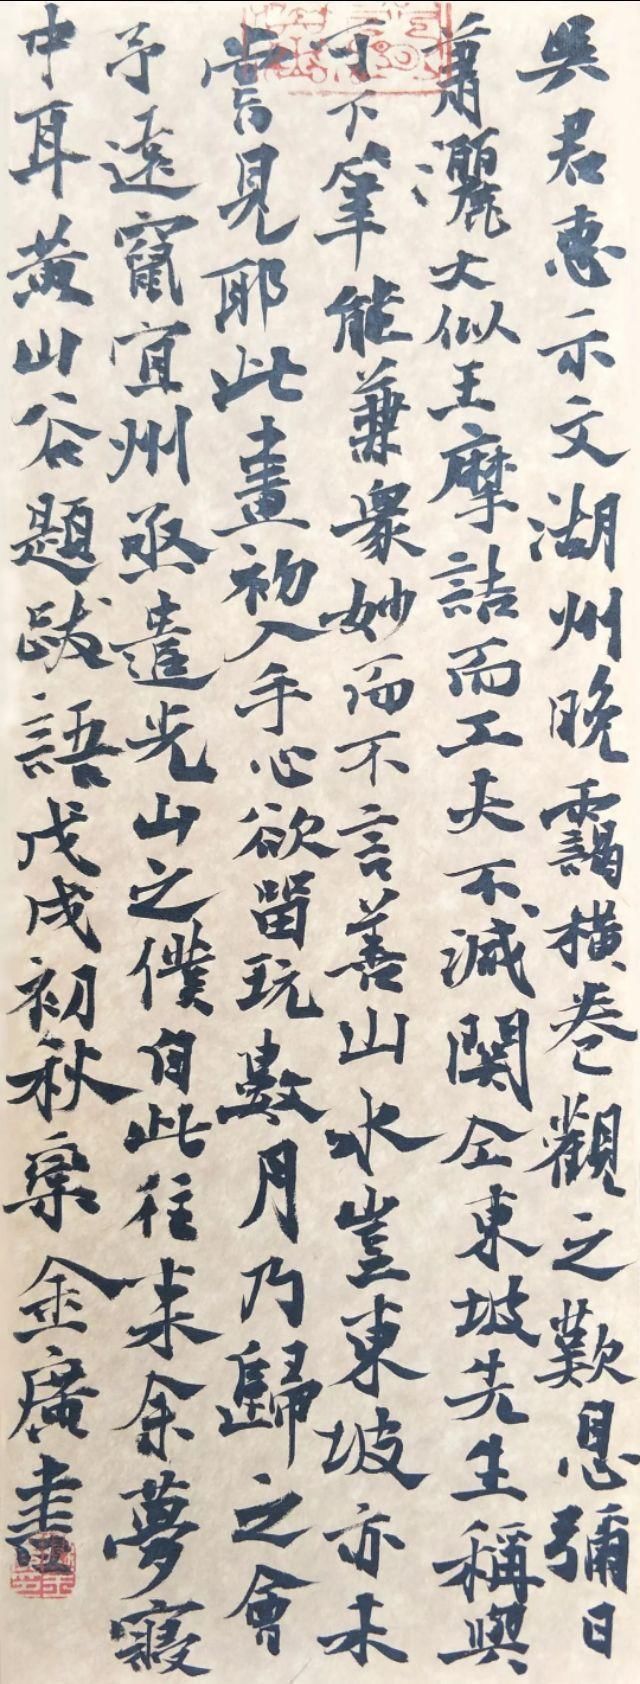 吳君惠示文湖州晚靄橫卷觀之歎息彌日
蕭灑大似王摩詰而工夫不減關仝東坡先生稱與
可下筆能兼衆妙而不言善山水豈東坡亦未
嘗見耶此畫初入手心欲畱玩數月乃歸之會
予遠竄宜州亟遣光山之僕自此往来余夢寢
中耳黃山谷題跋語戊戌初秋金廣書